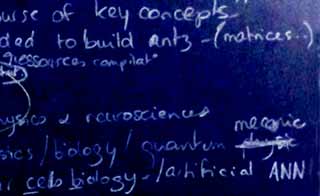 urse of key concepts
ded to build ants - (matrices..)
ressources compilat°
hysics & neurosciences
sics / biology / quantum mecanic
cell biology - / artificial ANN